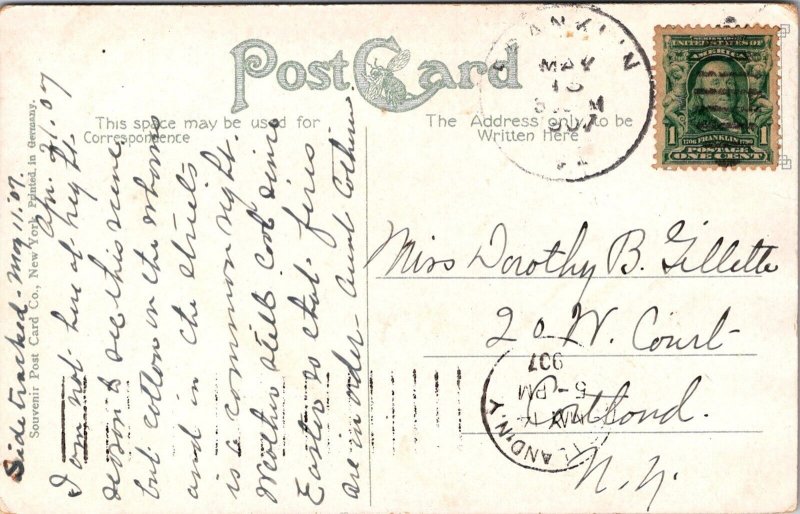 Post Card
This space may be used for
Correspondence
The Address only to be
Written Here
FRANKLIN
MAY
1907
SERIES 1902
UNITED STATES OF
AMERICA
1 1706 FRANKLIN 1790 1
POSTAGE
ONE CENT
Miss Dorothy B. Gillette
20 W. Court
Cortland.
N.Y.
CORTLAND N.Y.
MAY
5-PM
907
Side tracked - May 11. '07.
Souvenir Post Card Co., New York. Printed in Germany.
Apr. 21. '07
I am not here at right
season to see this scene,
but cotton in the wharves
and in the streets
is a common sight.
Weather still cool since
Easter so that fires
are in order - Aunt Catherine